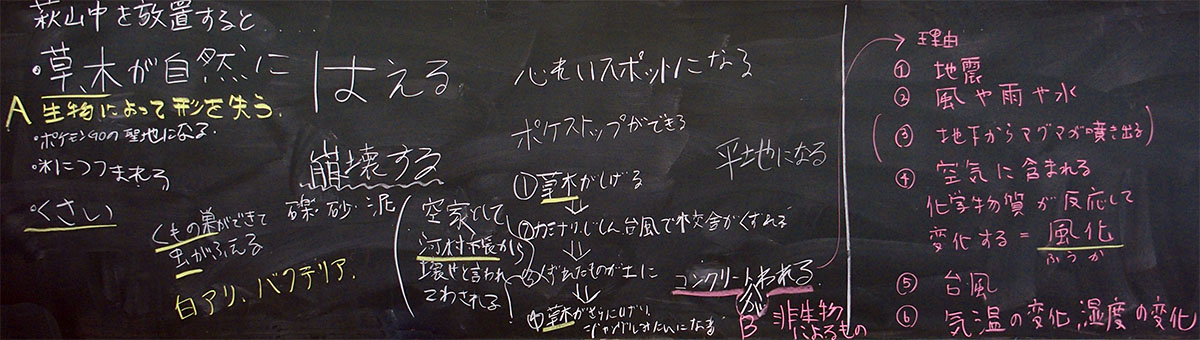 萩山中を放置すると....
・草木が自然に はえる
A 生物によって形を失う.
・ポケモンGOの聖地になる.
・氷につつまれる
・くさい
くもの巣ができて
虫がふえる
白アリ、バクテリア.
崩壊する
礫・砂・泥
空家として
河村市長から
壊せと言われ
てこわされる
心もいスポットになる
ポケストップができる
平地になる
①草木がしげる
②カミナリ、じしん、台風で校舎がくずれる
③くずれたものが土に
④草木がさらにしげり、
ジャングルみたいになる
コンクリートがわれる
B 非生物
によるもの
理由
① 地震
② 風や雨や水
(③ 地下からマグマが噴き出る)
④ 空気に含まれる
化学物質が反応して
変化する = 風化
ふうか
⑤ 台風
⑥ 気温の変化、湿度の変化